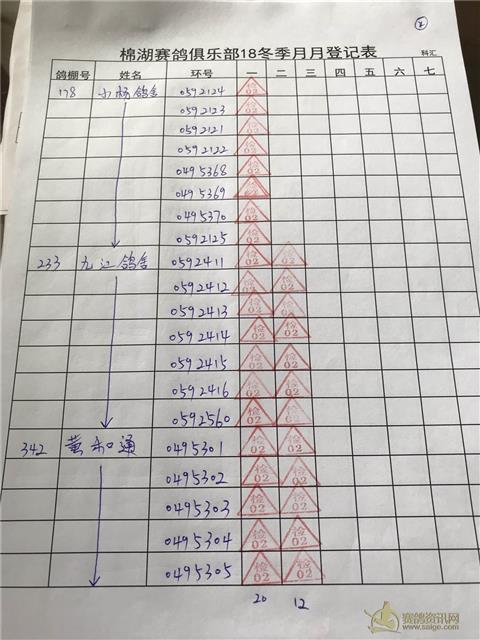 棉湖赛鸽俱乐部18冬季月月登记表 科汇
鸽棚号 姓名 环号 一 二 三 四 五 六 七
178 小杨鸽舍 0592124 检02
0592123 检02
0592121 检02
0592122 检02
0495368 检02
0495369 检02
0495370 检02
0592125 检02
233 九江鸽舍 0592411 检02 检02
0592412 检02 检02
0592413 检02 检02
0592414 检02 检02
0592415 检02 检02
0592416 检02 检02
0592560 检02 检02
342 黄和通 0495301 检02 检02
0495302 检02 检02
0495303 检02 检02
0495304 检02 检02
0495305 检02 检02
20 12
赛鸽资讯网
www.saige.com